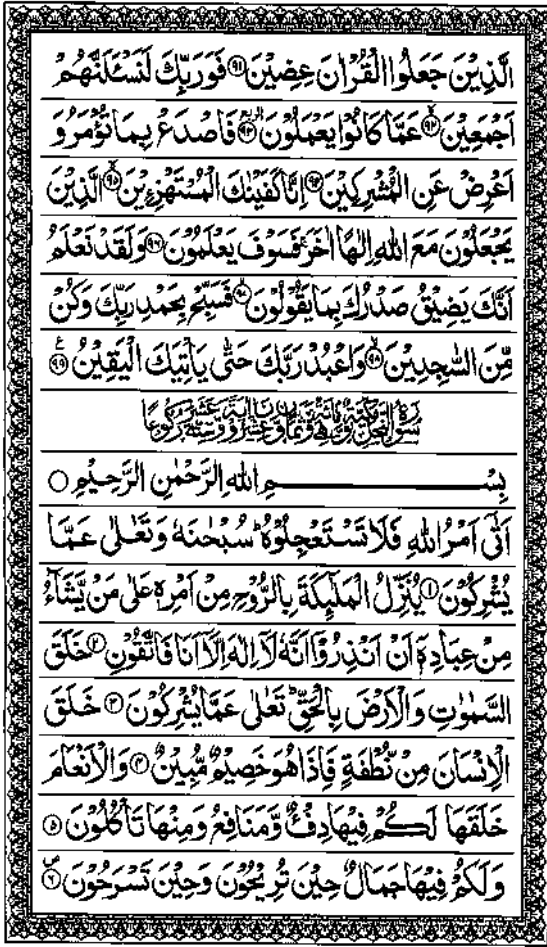 الَّذِيْنَ جَعَلُوا الْقُرْاٰنَ عِضِيْنَ ﴿۹۱﴾ فَوَرَبِّكَ لَنَسْـَٔلَنَّهُمْ
اَجْمَعِيْنَ ﴿۹۲﴾ عَمَّا كَانُوْا يَعْمَلُوْنَ ﴿۹۳﴾ فَاصْدَعْ بِمَا تُؤْمَرُ وَ
اَعْرِضْ عَنِ الْمُشْرِكِيْنَ ﴿۹۴﴾ اِنَّا كَفَيْنٰكَ الْمُسْتَهْزِءِيْنَ ﴿۹۵﴾ الَّذِيْنَ
يَجْعَلُوْنَ مَعَ اللّٰهِ اِلٰهًا اٰخَرَ ۚ فَسَوْفَ يَعْلَمُوْنَ ﴿۹۶﴾ وَلَقَدْ نَعْلَمُ
اَنَّكَ يَضِيْقُ صَدْرُكَ بِمَا يَقُوْلُوْنَ ﴿۹۷﴾ فَسَبِّحْ بِحَمْدِ رَبِّكَ وَكُنْ
مِّنَ السّٰجِدِيْنَ ﴿۹۸﴾ وَاعْبُدْ رَبَّكَ حَتّٰى يَاْتِيَكَ الْيَقِيْنُ ﴿۹۹﴾
بِسْمِ اللّٰهِ الرَّحْمٰنِ الرَّحِيْمِ ○
اَتٰٓى اَمْرُ اللّٰهِ فَلَا تَسْتَعْجِلُوْهُ ؕ سُبْحٰنَهٗ وَتَعٰلٰى عَمَّا
يُشْرِكُوْنَ ﴿۱﴾ يُنَزِّلُ الْمَلٰٓئِكَةَ بِالرُّوْحِ مِنْ اَمْرِهٖ عَلٰى مَنْ يَّشَآءُ
مِنْ عِبَادِهٖٓ اَنْ اَنْذِرُوْٓا اَنَّهٗ لَآ اِلٰهَ اِلَّآ اَنَا فَاتَّقُوْنِ ﴿۲﴾ خَلَقَ
السَّمٰوٰتِ وَالْاَرْضَ بِالْحَقِّ ؕ تَعٰلٰى عَمَّا يُشْرِكُوْنَ ﴿۳﴾ خَلَقَ
الْاِنْسَانَ مِنْ نُّطْفَةٍ فَاِذَا هُوَ خَصِيْمٌ مُّبِيْنٌ ﴿۴﴾ وَالْاَنْعَامَ
خَلَقَهَا لَكُمْ فِيْهَا دِفْءٌ وَّمَنَافِعُ وَمِنْهَا تَاْكُلُوْنَ ﴿۵﴾
وَلَكُمْ فِيْهَا جَمَالٌ حِيْنَ تُرِيْحُوْنَ وَحِيْنَ تَسْرَحُوْنَ ﴿۶﴾